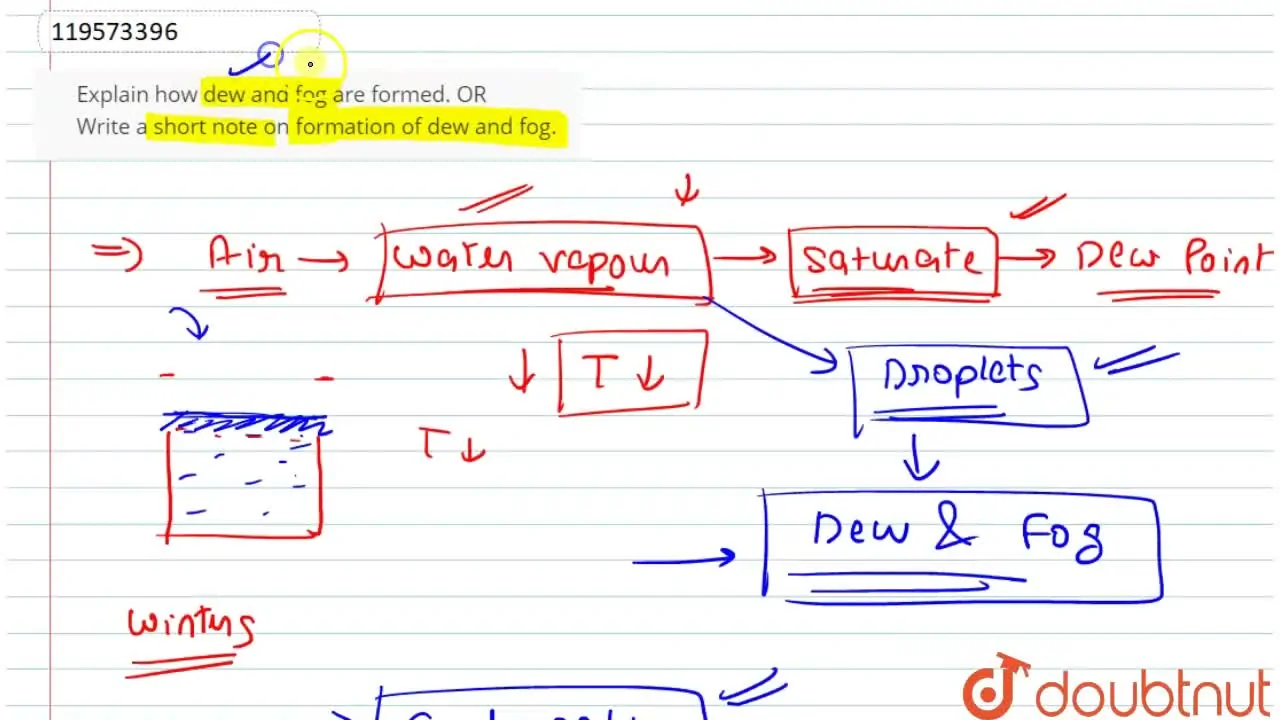 119573396
Explain how dew and fog are formed. OR
Write a short note on formation of dew and fog.
⇒ Air → water vapour → saturate → Dew Point
↓ T ↓
Droplets
T ↓
Dew & Fog
winters
doubtnut